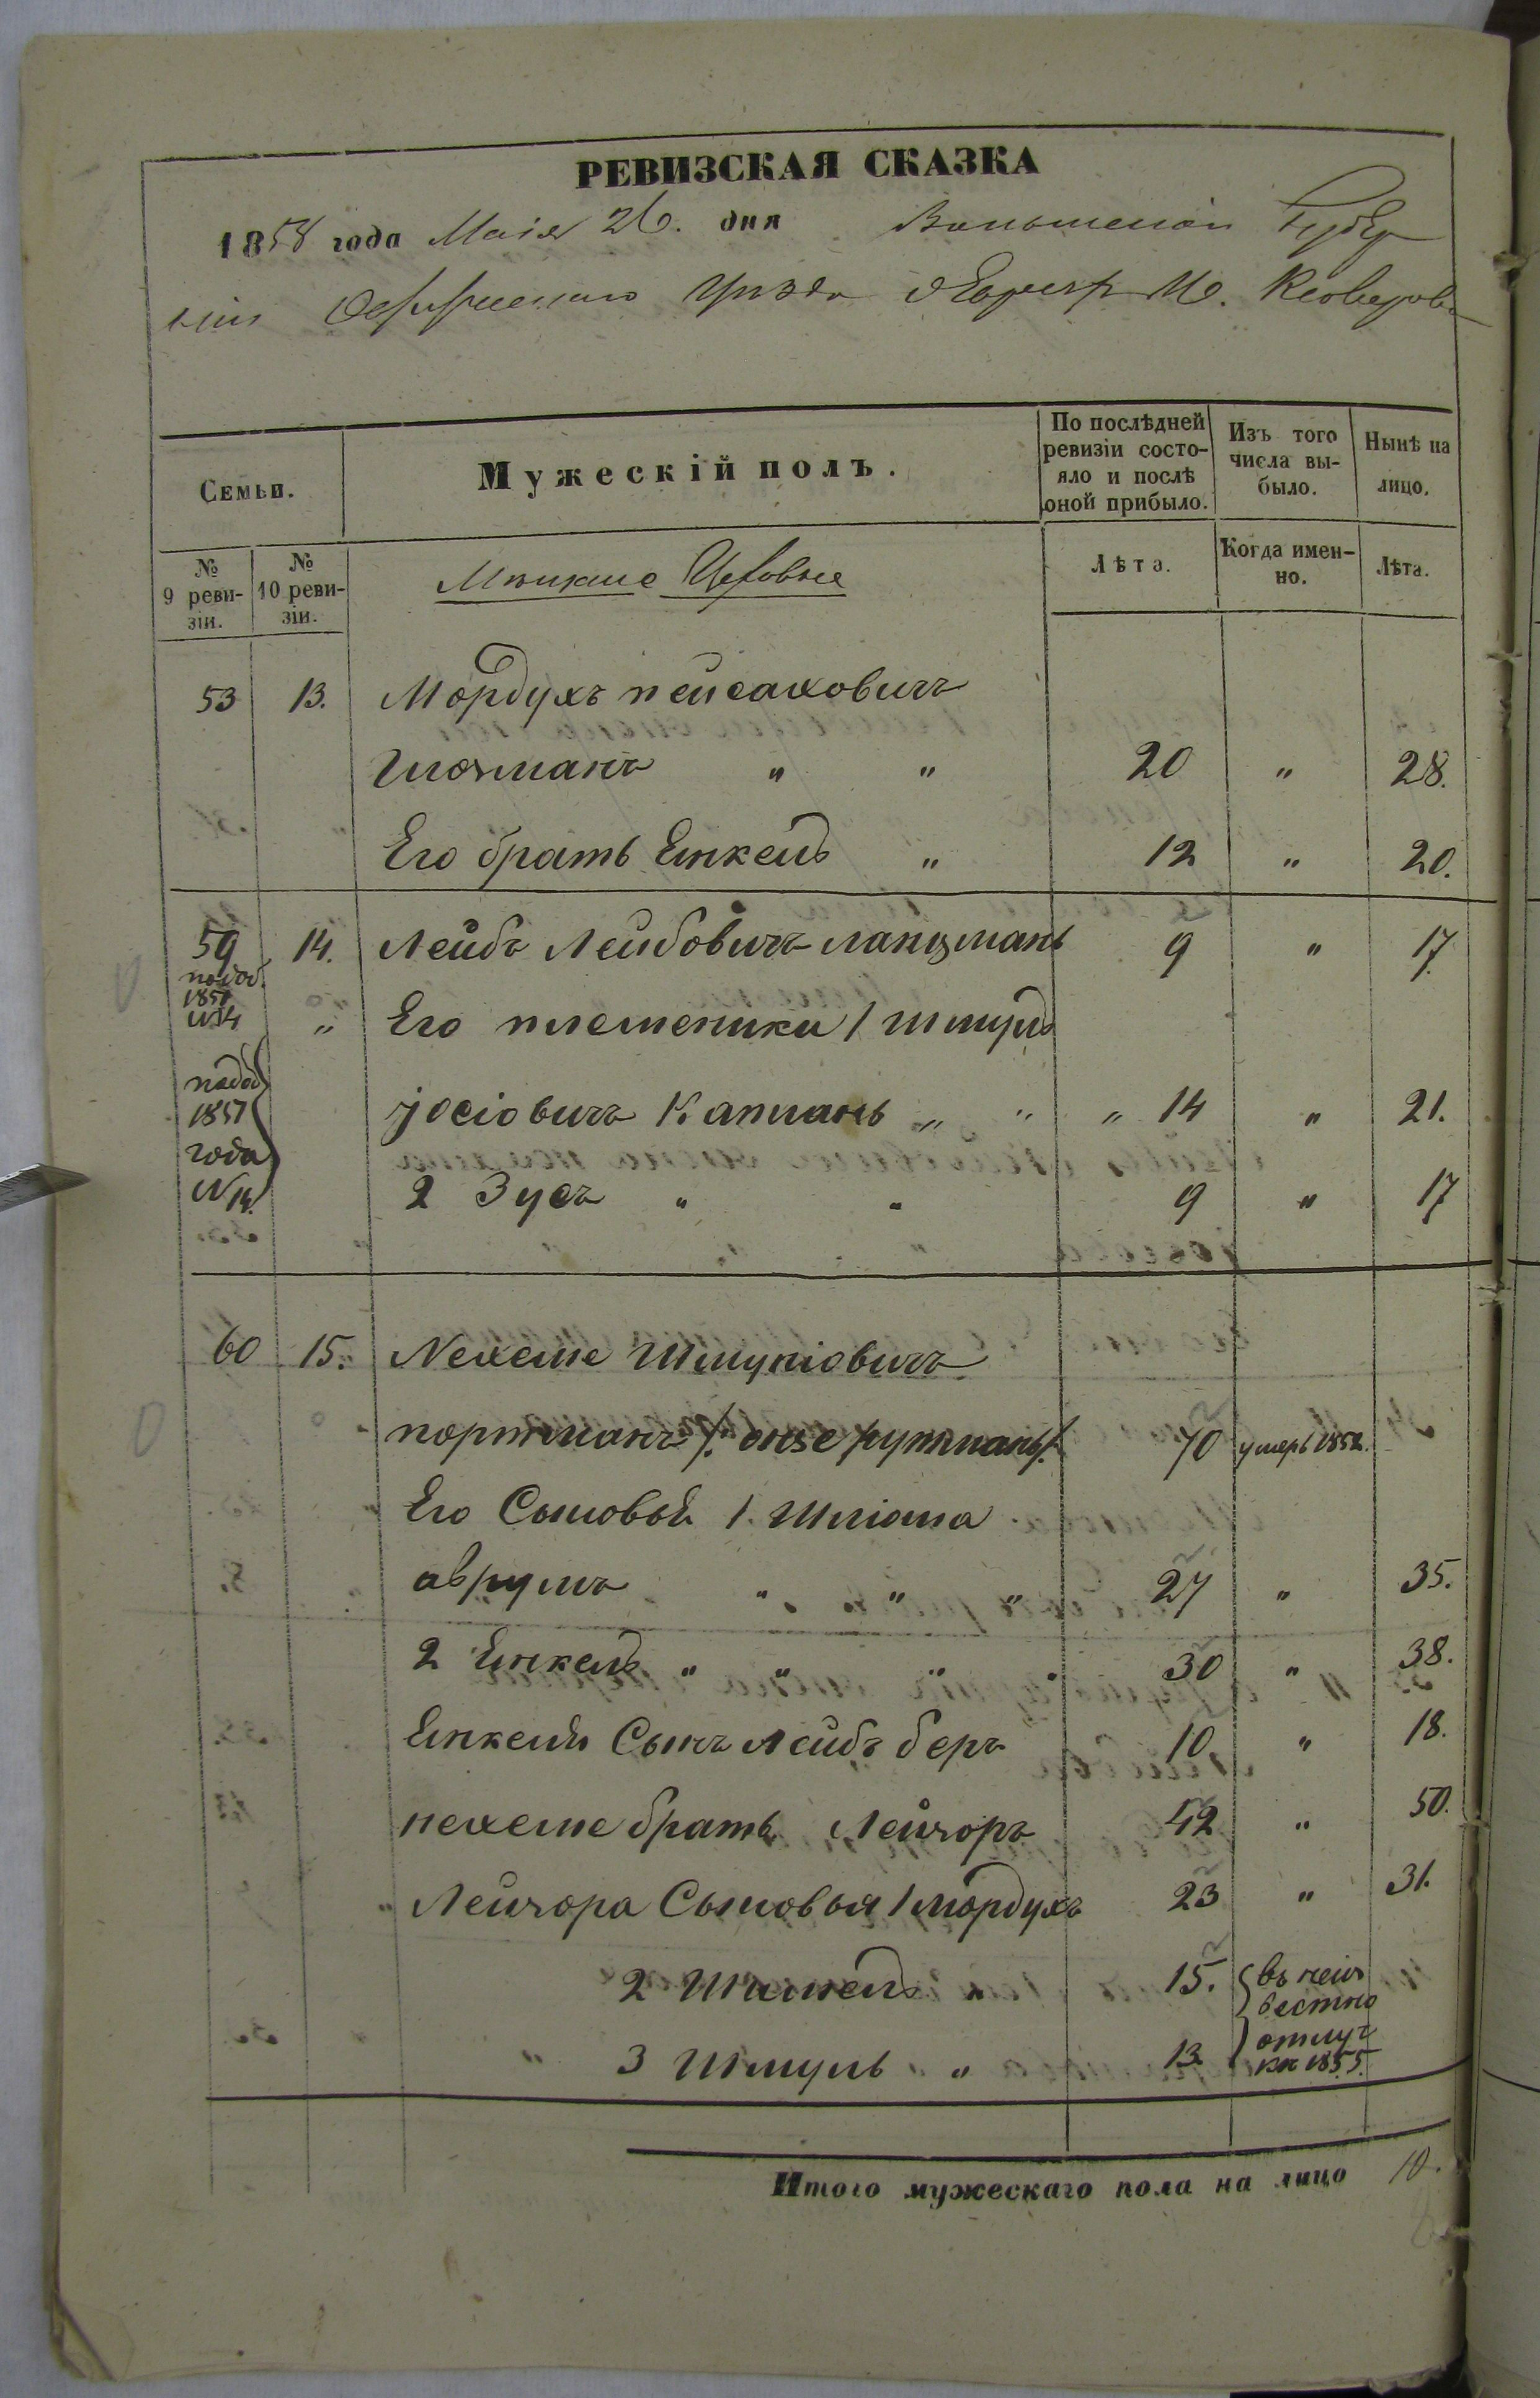 РЕВИЗСКАЯ СКАЗКА
1858 года Маія 26. дня Волынской Губер
ніи Острожскаго Уѣзда о Евреяхъ М.
Семьи. Мужескій полъ. По послѣдней ревизіи состо-яло и послѣ оной прибыло. Изъ того числа вы-было. Нынѣ на лицо.
№ 9 реви-зіи. № 10 реви-зіи. Мѣщане Цеховые Лѣта. Когда имен-но. Лѣта.
53 13. Мордухъ пейсаховичъ
Шохманъ " " 20 " 28.
Его братъ Енкель " 12 " 20.
59 14. Лейбъ Лейбовичъ ланцманъ 9 " 17.
подод. 1851 №14 " Его племеники 1 шмуль
подод 1851 года №14. јосіовичъ Капланъ " " " 14 " 21.
2 Зусъ " " 9 " 17
60 15. Nехеме Шмуліовичъ
портманъ /: онже рутманъ:/ 70 умеръ 1852.
Его Сыновья 1. Шліома
аврумъ " " " 27 " 35.
2 Енкель " " " 30 " 38.
Енкеля Сынъ Лейбъ беръ 10 " 18.
нехеме братъ Лейзоръ 42 " 50.
Лейзора Сыновья 1 мордухъ 23 " 31.
2 " 15. въ неиз
вестно
3 Шмуль " 13. отлуч
ки 1855.
Итого мужескаго пола на лицо 10.